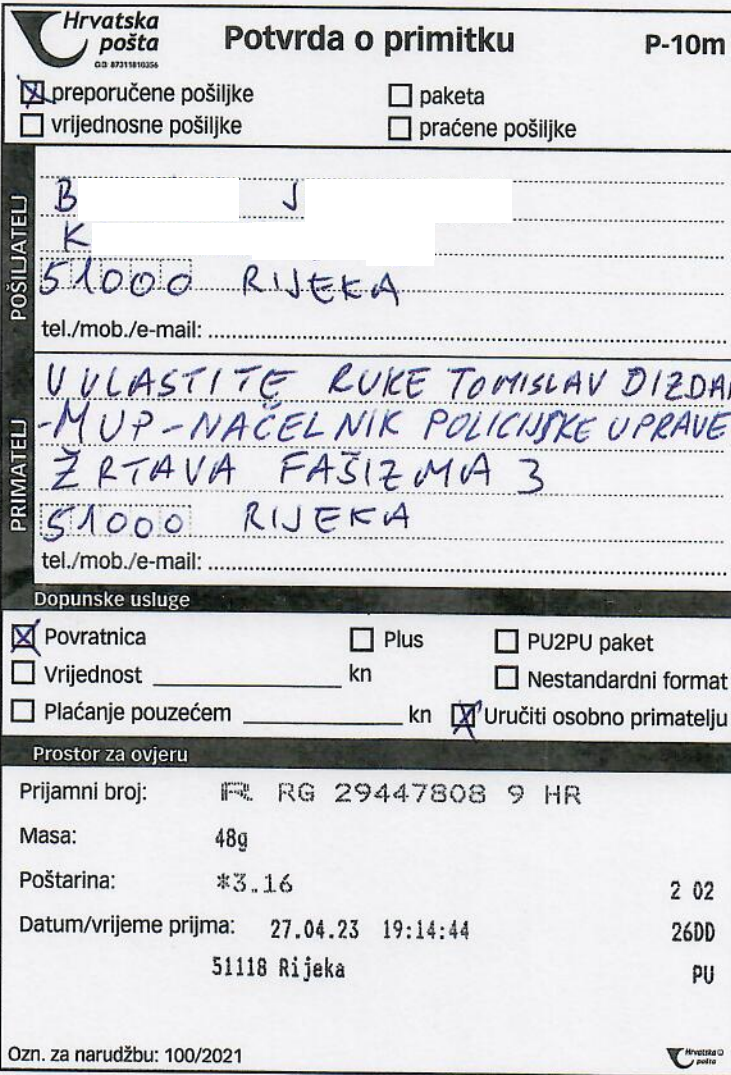 Hrvatska pošta Potvrda o primitku P-10m
OIB 87311810356
preporučene pošiljke paketa
vrijednosne pošiljke praćene pošiljke
POŠILJATELJ
B J
K
51000 RIJEKA
tel./mob./e-mail:
PRIMATELJ
U VLASTITE RUKE TOMISLAV DIZDAR
-MUP-NAČELNIK POLICIJSKE UPRAVE
ŽRTAVA FAŠIZMA 3
51000 RIJEKA
tel./mob./e-mail:
Dopunske usluge
Povratnica Plus PU2PU paket
Vrijednost kn Nestandardni format
Plaćanje pouzećem kn Uručiti osobno primatelju
Prostor za ovjeru
Prijamni broj: R RG 29447808 9 HR
Masa: 48g
Poštarina: *3.16 2 02
Datum/vrijeme prijma: 27.04.23 19:14:44 26DD
51118 Rijeka PU
Ozn. za narudžbu: 100/2021 Hrvatska pošta